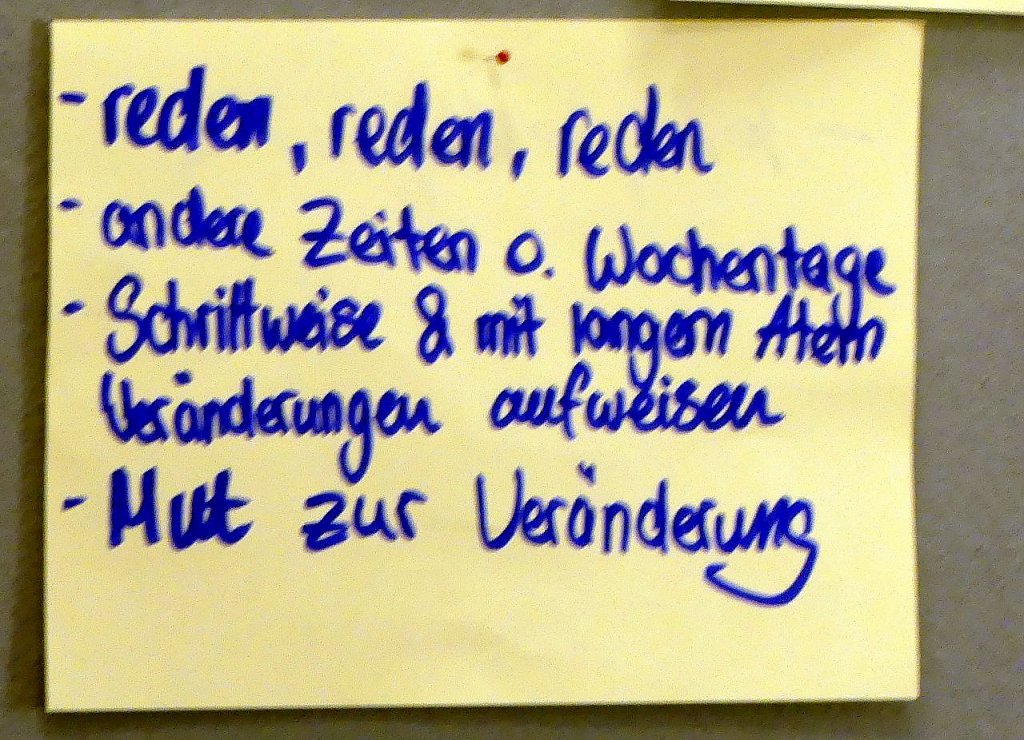 - reden, reden, reden
- andere Zeiten o. Wochentage
- Schrittweise & mit langem Atem
Veränderungen aufweisen
- Mut zur Veränderung